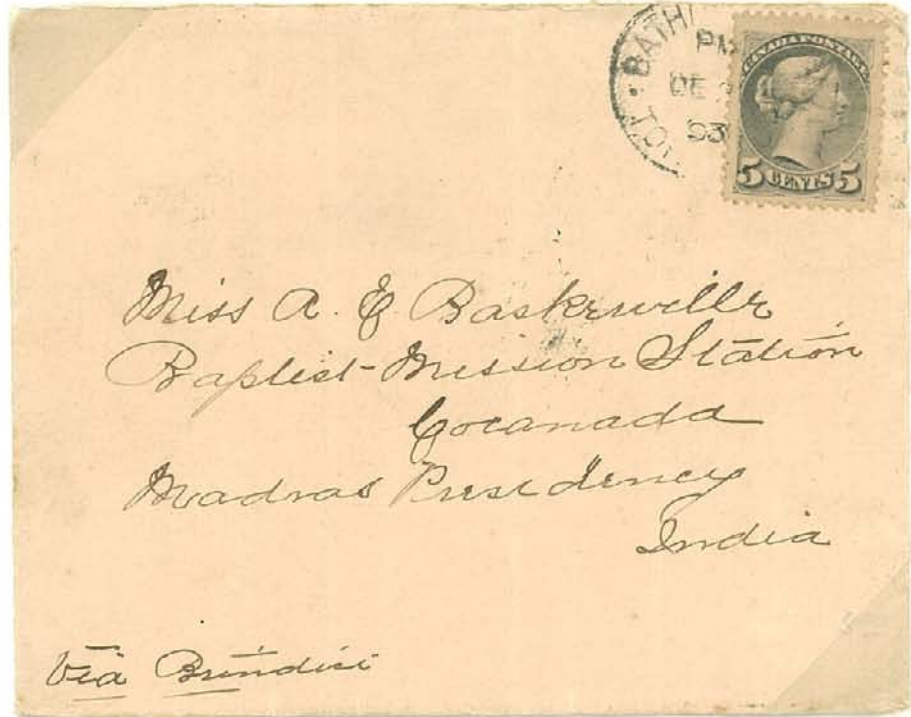 BATH
PM
DE
93
TO
CANADA POSTAGE
5 CENTS 5
Miss A. E Baskerville
Baptist-Mission Station
Cocanada
Madras Presidency
India
Via Brindisi